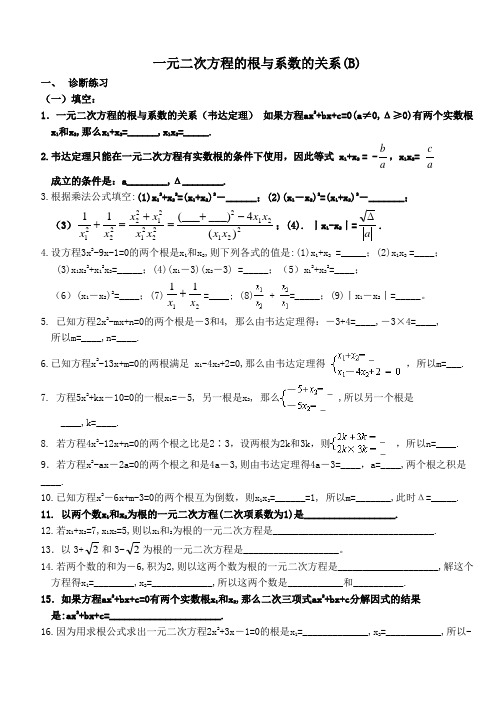 一元二次方程的根与系数的关系(B)
一、 诊断练习
(一)填空:
1. 一元二次方程的根与系数的关系（韦达定理） 如果方程ax²+bx+c=0(a≠0,Δ≥0)有两个实数根
x₁和x₂,那么x₁+x₂=______,x₁x₂=_____.
2.韦达定理只能在一元二次方程有实数根的条件下使用，因此等式 x₁+x₂ = -b/a，x₁x₂= c/a
成立的条件是：a________,Δ________.
3.根据乘法公式填空:(1)x₁²+x₂²=(x₁+x₂)²－______；(2)(x₁－x₂)²=(x₁+x₂)²－_______；
（3）1/x₁²+1/x₂²=(x₂²+x₁²)/(x₁²x₂²)=((___+___)²－4x₁x₂)/(x₁x₂)²；(4). ｜x₁-x₂｜=√Δ/|a|.
4.设方程3x²-9x-1=0的两个根是x₁和x₂,则下列各式的值是:(1)x₁+x₂ =_____；(2)x₁x₂ =____；
(3)x₁x₂²+x₁²x₂=_____；(4)(x₁－3)(x₂－3) =_____；（5）x₁²+x₂²=____；
（6）(x₁－x₂)²=____；(7)1/x₁+1/x₂=____；(8)x₁/x₂ + x₂/x₁=_____；(9)｜x₁－x₂｜=_____。
5. 已知方程2x²-mx+n=0的两个根是－3和4, 那么由韦达定理得：－3+4=____,－3×4=____,
所以m=____,n=____.
6.已知方程x²-13x+m=0的两根满足 x₁-4x₂+2=0,那么由韦达定理得 {x₁+x₂=_ x₁－4x₂+2 = 0 ，所以m=___.
7. 方程5x²+kx－10=0的一根x₁=－5, 另一根是x₂, 那么{－5+x₂=_ －5x₂=_ ,所以另一个根是
____,k=____.
8. 若方程4x²-12x+n=0的两个根之比是2∶3，设两根为2k和3k，则{2k+3k=_ 2k×3k=_ ，所以n=____.
9．若方程x²-ax－2a=0的两个根之和是4a－3,则由韦达定理得4a－3=____，a=____,两个根之积是
____.
10.已知方程x²－6x+m-3=0的两个根互为倒数，则x₁x₂=______=1, 所以m=_______,此时Δ=_____.
11. 以两个数x₁和x₂为根的一元二次方程(二次项系数为1)是____________________.
12.若x₁+x₂=7,x₁x₂=5,则以x₁和x₂为根的一元二次方程是___________________________________.
13．以3+√2和3-√2为根的一元二次方程是___________________。
14.若两个数的和为－6,积为2,则以这两个数为根的一元二次方程是______________________,解这个
方程得x₁=________,x₂=_____________,所以这两个数是____________和__________.
15．如果方程ax²+bx+c=0有两个实数根x₁和x₂,那么二次三项式ax²+bx+c分解因式的结果
是:ax²+bx+c=________________________.
16.因为用求根公式求出一元二次方程2x²+3x－1=0的根是x₁=______________,x₂=____________,所以-